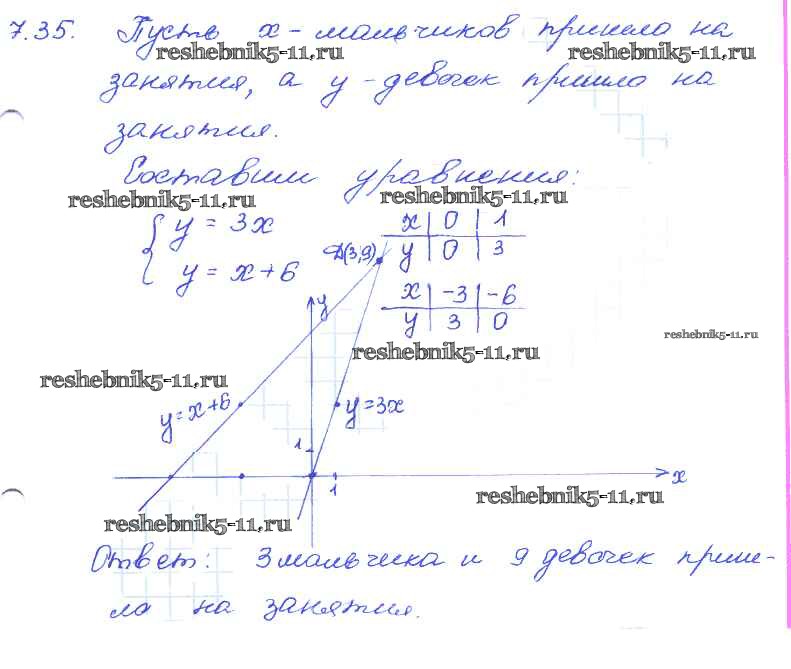 7.35. Пусть x - мальчиков пришло на
reshebnik5-11.ru reshebnik5-11.ru
занятия, а y - девочек пришло на
занятия.
Составим уравнения:
reshebnik5-11.ru reshebnik5-11.ru
{ y = 3x
y = x+6
x | 0 | 1
y | 0 | 3
A(3,9)
x | -3 | -6
y | 3 | 0
y
reshebnik5-11.ru
reshebnik5-11.ru
reshebnik5-11.ru
y=x+6
y=3x
1
x
1
reshebnik5-11.ru
reshebnik5-11.ru
Ответ: 3 мальчика и 9 девочек приш-
ло на занятия.